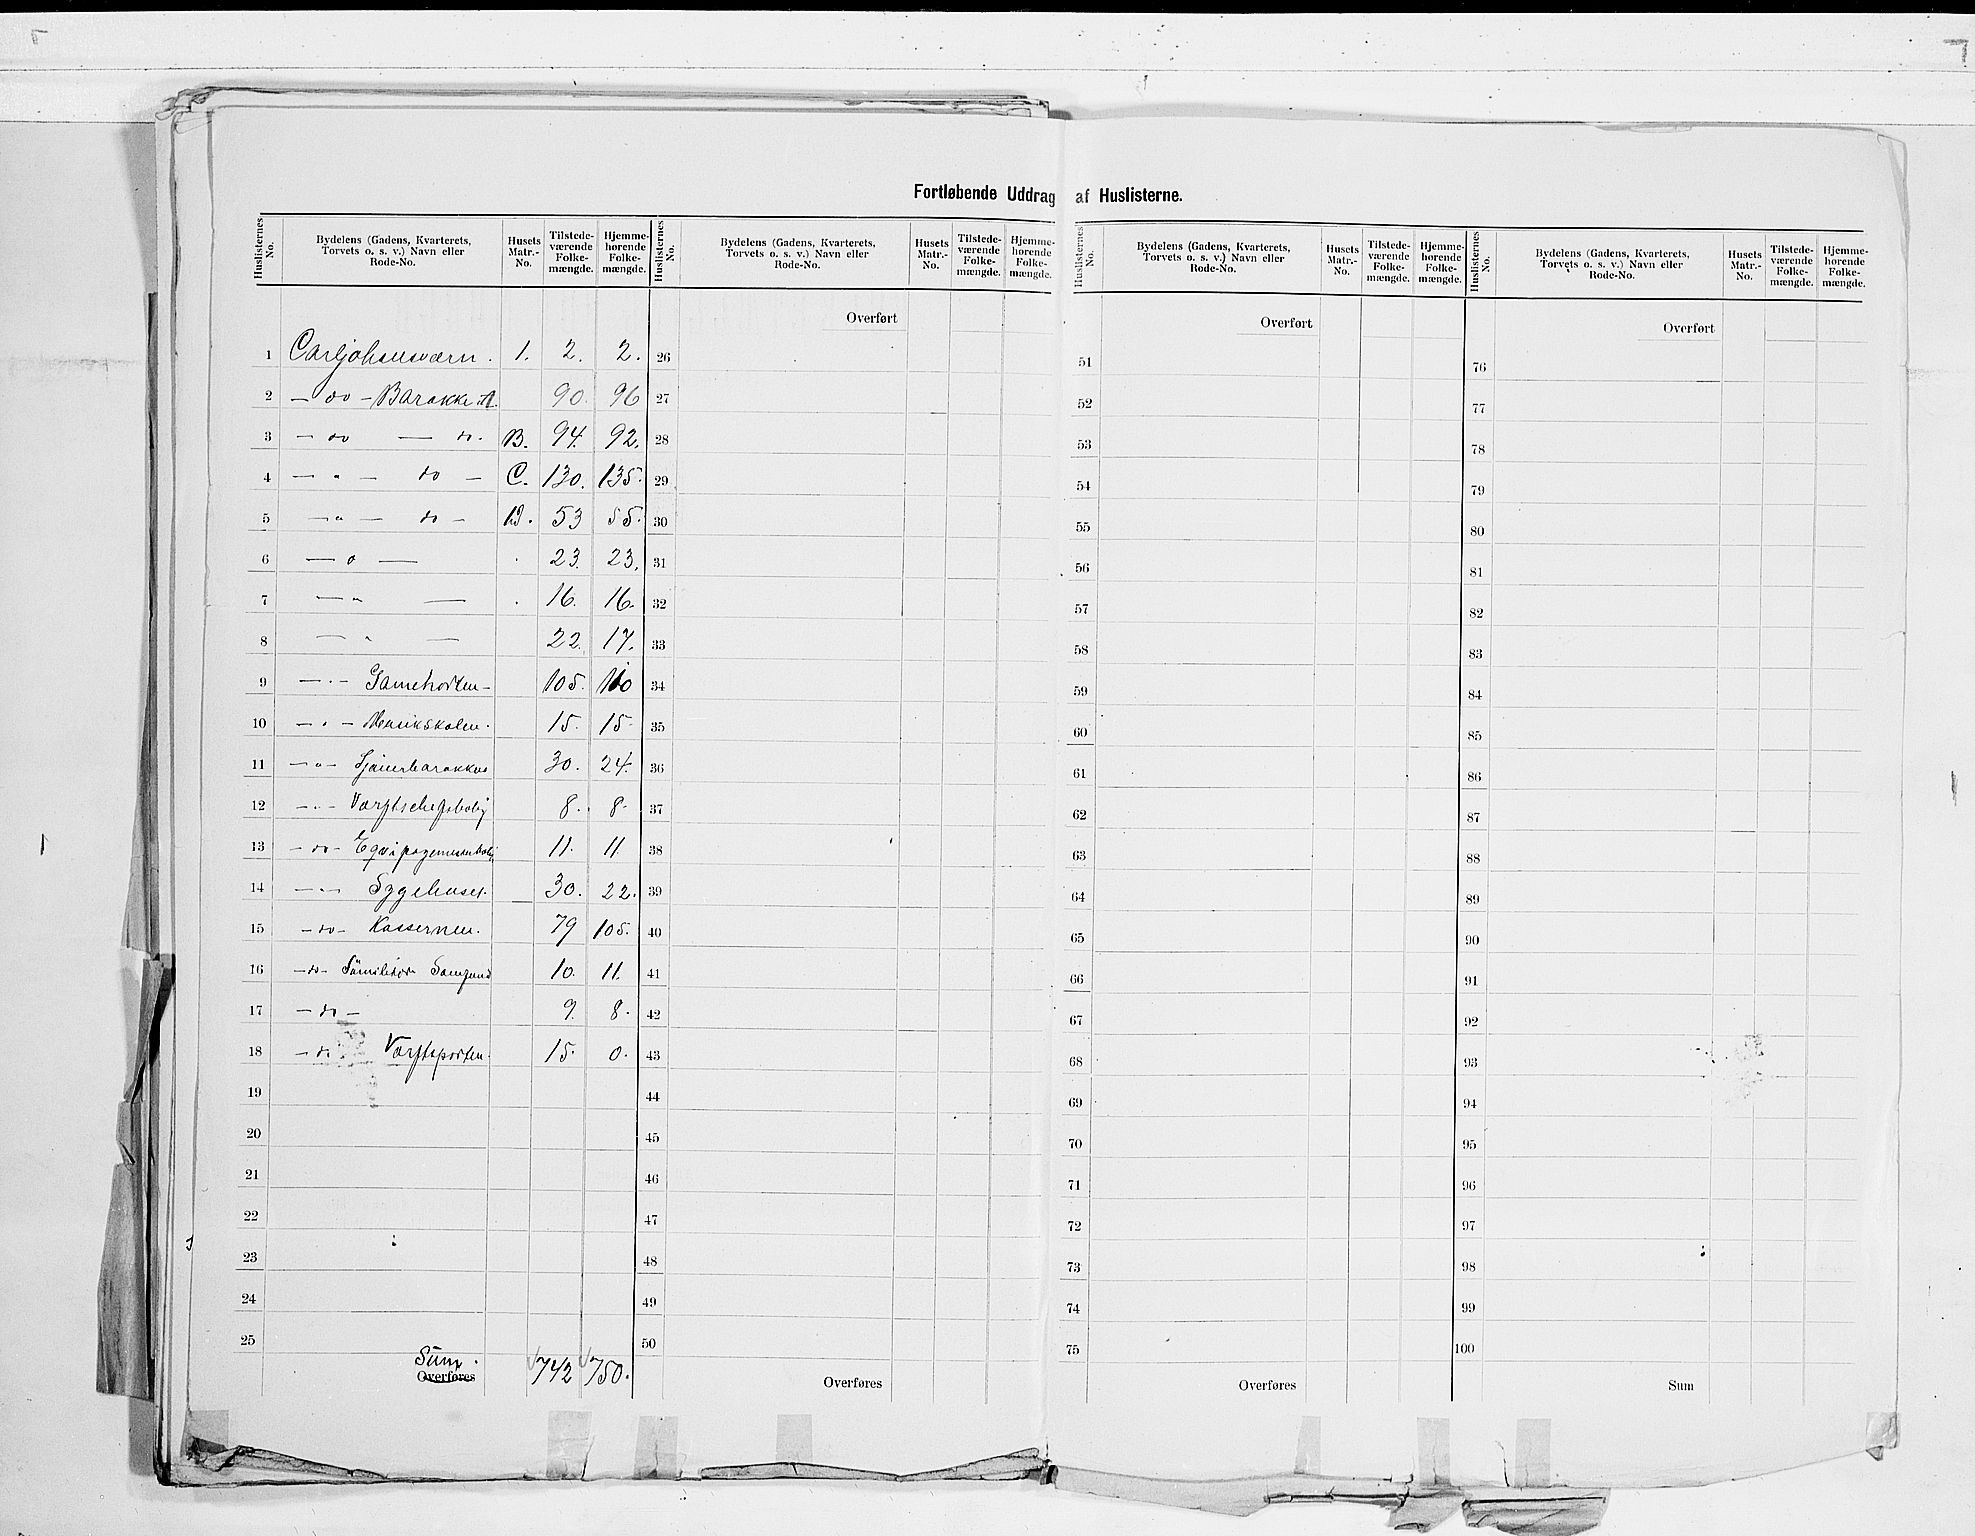 Fortløbende Uddrag af Huslisterne.
Huslisternes No. Bydelens (Gadens, Kvarterets, Torvets o. s. v.) Navn eller Rode-No. Husets Matr.-No. Tilstedeværende Folkemængde. Hjemmehørende Folkemængde.
1 Carljohansværn. 1. 2. 2.
2 — do — Barakke A. 90. 96
3 — do — do. B. 94. 92.
4 — " — do — C. 130. 135.
5 — " — do — D. 53 55.
6 — " — 23. 23.
7 — " — 16. 16.
8 — " — 22. 17.
9 — " — 105. 110
10 — " — 15. 15.
11 — " — 30. 24.
12 — " — Værftschefsbolig 8. 8.
13 — do — 11. 11.
14 — " — Sygehuset. 30. 22.
15 — do — Kassernen. 79 105.
16 — do — 10. 11.
17 — do — 9. 8.
18 — do Værftsporten. 15. 0.
19
20
21
22
23
24
25
Sum.
Overføres 742 750.
Huslisternes No. Bydelens (Gadens, Kvarterets, Torvets o. s. v.) Navn eller Rode-No. Husets Matr.-No. Tilstedeværende Folkemængde. Hjemmehørende Folkemængde.
Overført
26
27
28
29
30
31
32
33
34
35
36
37
38
39
40
41
42
43
44
45
46
47
48
49
50
Overføres
Huslisternes No. Bydelens (Gadens, Kvarterets, Torvets o. s. v.) Navn eller Rode-No. Husets Matr.-No. Tilstedeværende Folkemængde. Hjemmehørende Folkemængde.
Overført
51
52
53
54
55
56
57
58
59
60
61
62
63
64
65
66
67
68
69
70
71
72
73
74
75
Overføres
Huslisternes No. Bydelens (Gadens, Kvarterets, Torvets o. s. v.) Navn eller Rode-No. Husets Matr.-No. Tilstedeværende Folkemængde. Hjemmehørende Folkemængde.
Overført
76
77
78
79
80
81
82
83
84
85
86
87
88
89
90
91
92
93
94
95
96
97
98
99
100
Sum